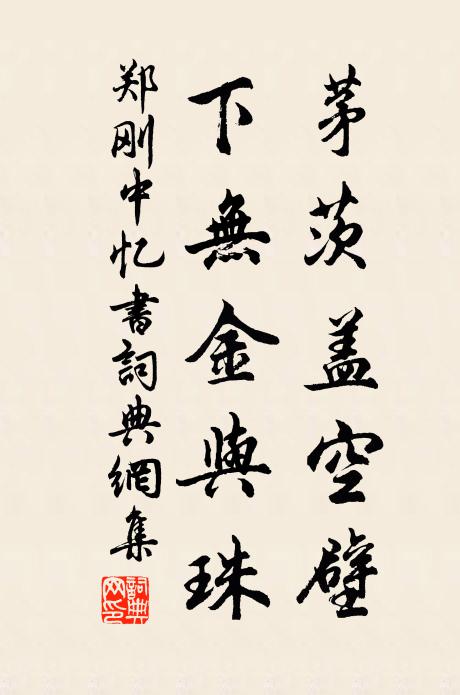 茅茨盖空壁
下無金與珠
郑刚中忆書詞典網集
詞典网印